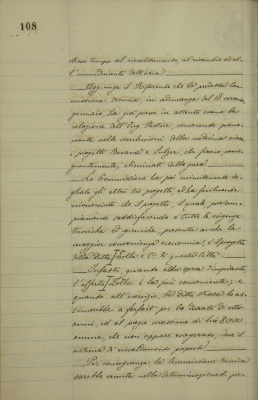 108
stesso tempo al riscaldamento, al ricambio ed al-
l'inumidimento dell'aria.
Aggiunge il Riferente che la predetta Com-
missione tecnica in adunanza del 18 corrente
gennaio, ha già preso in attento esame la
relazione dell'Ing. Pastore, convenendo piena-
mente nelle conclusioni della medesima circa
i progetti Besana e Sulzer, che furono, conse-
guentemente, eliminati dalla gara.
La Commissione ha poi minutamente va-
gliato gli altri tre progetti, ed ha facilmente
riconosciuto che il progetto il quale, pur am-
piamente soddisfacendo a tutte le esigenze
tecniche ed igieniche, presenta anche la
maggior convenienza economica, è il progetto
della Ditta Zolla e C. di questa città.
Infatti, quanto alla spesa d'impianto,
l'offerta Zolla è la più conveniente; e
quanto all'esercizio, la ditta stessa lo as-
sumerebbe a forfait per la durata di otto
anni, ed al prezzo massimo di Lire
annue, che non appare esagerato, dato il
sistema di riscaldamento proposto.
Per conseguenza, la Commissione tecnica
sarebbe venuta nella determinazione di pro-